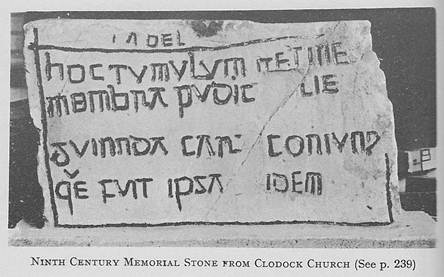 INDEL
hOCTVMVLVM RETINE
MEMBRA PUDIC LIE
GUINNDA CARI CONIVNX
QE FUIT IPSA IDEM
NINTH CENTURY MEMORIAL STONE FROM CLODOCK CHURCH (See p. 239)